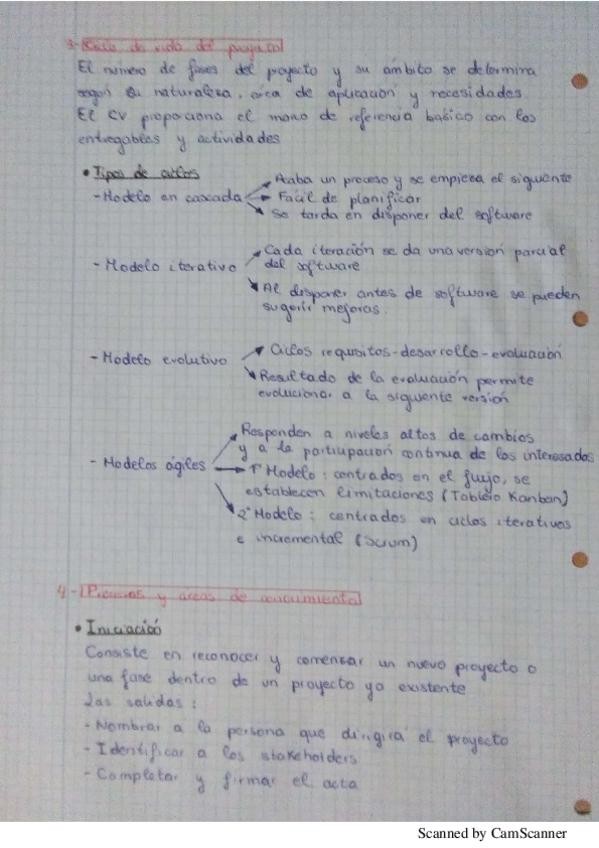 3- Ciclo de vida del proyecto
El número de fases del proyecto y su ámbito se determina
según su naturaleza, área de aplicación y necesidades.
El CV proporciona el marco de referencia básico con los
entregables y actividades
• Tipos de ciclos
- Modelo en cascada
Acaba un proceso y se empieza el siguiente
Facil de planificar
Se tarda en disponer del software
- Modelo iterativo
Cada iteración se da una versión parcial
del software
Al disponer antes de software se pueden
sugerir mejoras.
- Modelo evolutivo
Ciclos requisitos-desarrollo-evaluación
Resultado de la evaluación permite
evolucionar a la siguiente versión
- Modelos ágiles
Responden a niveles altos de cambios
y a la participación continua de los interesados
1º Modelo: centrados en el flujo, se
establecen limitaciones (Tablero Kanban)
2º Modelo: centrados en ciclos iterativos
e incremental (Scrum)
4- Procesos y áreas de conocimiento
• Iniciación
Consiste en reconocer y comenzar un nuevo proyecto o
una fase dentro de un proyecto ya existente
Las salidas:
- Nombrar a la persona que dirigirá el proyecto
- Identificar a los stakeholders
- Completar y firmar el acta
Scanned by CamScanner